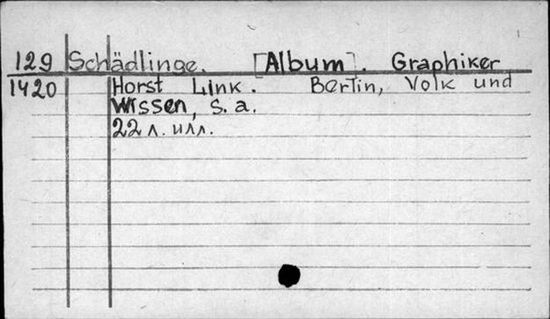 129 Schädlinge. [Album]. Graphiker
1420 Horst Link. Berlin, Volk und
Wissen, s. a.
22 л. илл.